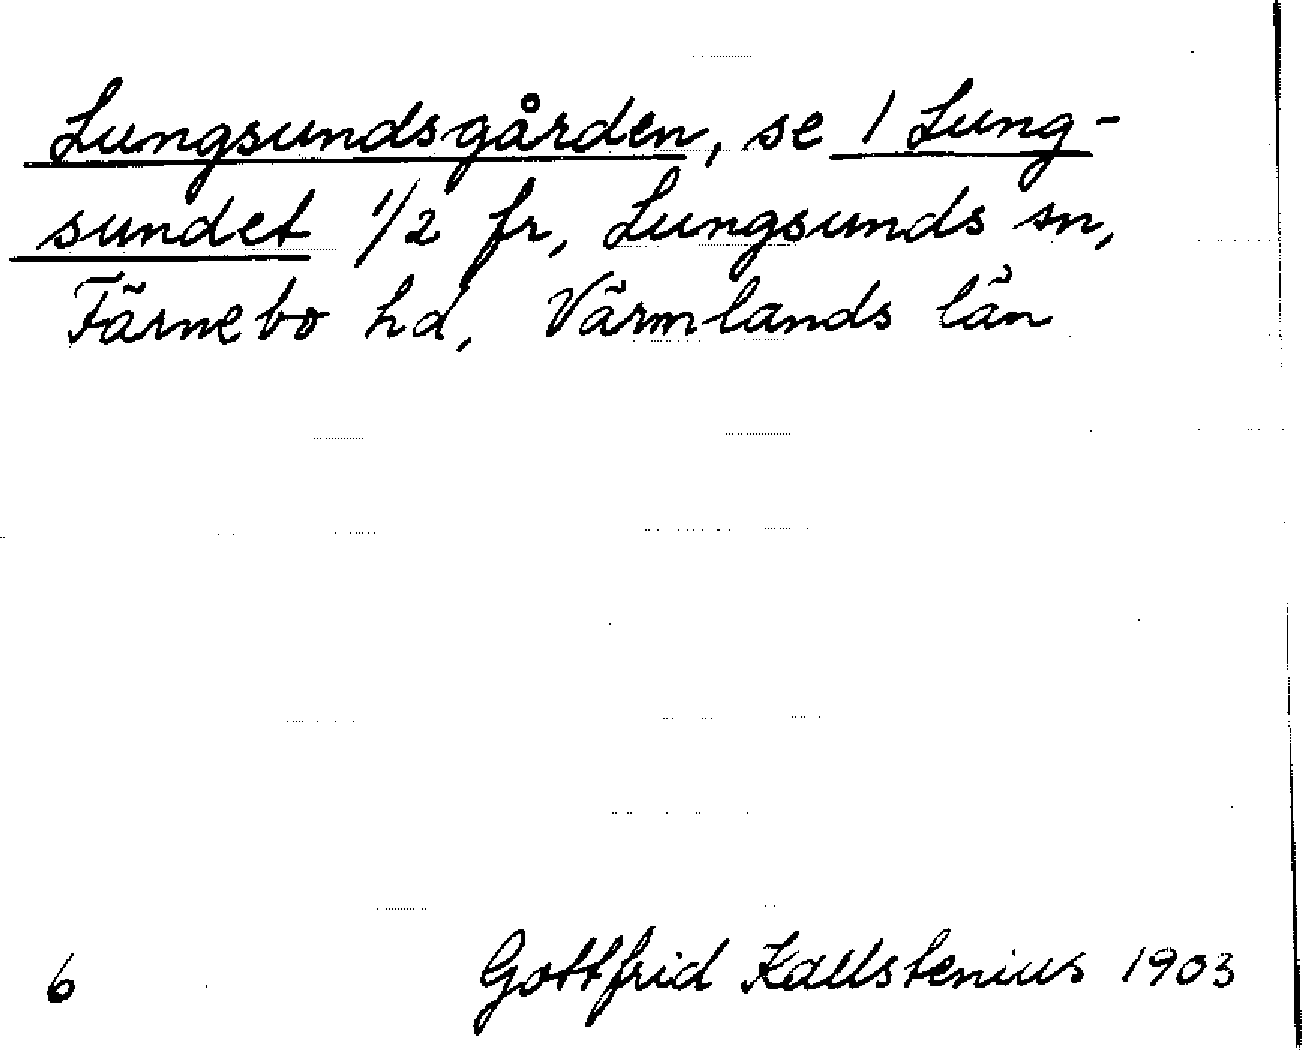 Lungsundsgården, se 1 Lung-
sundet 1/2 fr, Lungsunds sn,
Färnebo hd, Värmlands län
6 Gottfrid Kallstenius 1903